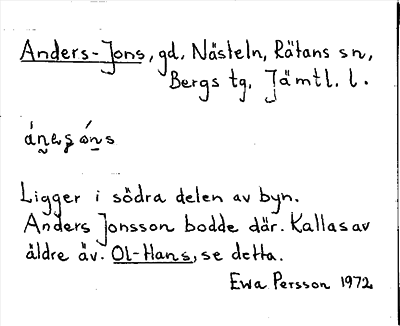 Anders-Jons, gd. Nästeln, Rätans sn,
Bergs tg, Jämtl. l.
Ligger i södra delen av byn.
Anders Jonsson bodde där. Kallas av
äldre äv. Ol-Hans, se detta.
Ewa Persson 1972